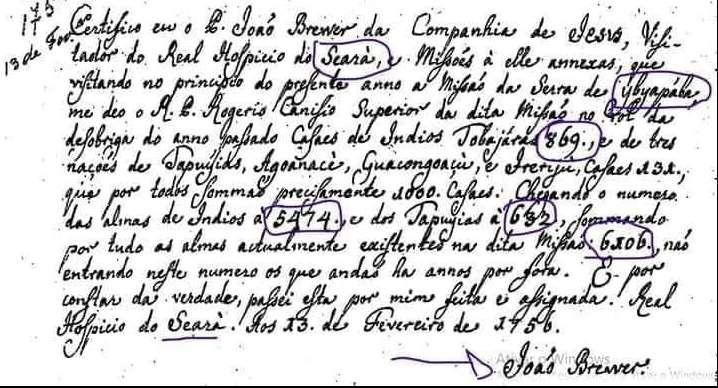 13 de Fev.
Certifico eu o P. João Brewer da Companhia de Jesus, Visi-
tador do Real Hospicio do Seará, e Missões à elle annexas, que
visitando no principio do presente anno a Missaõ da Serra de ybyapába,
me deo o R. P. Rogerio Canisio Superior da dita Missaõ no Rol da
desobriga do anno passado Casaes de Indios Tobajáras 869., e de tres
nações de Tapuyias, Agoanacè, Guacongoaçù, e Irerijù, Casaes 131.,
que por todos sommaõ precisamente 1000. Casaes. Chegando o numero
das almas de Indios a 5474., e dos Tapuyias à 632, sommando
por tudo as almas actualmente existentes na dita Missaõ: 6106., naõ
entrando neste numero os que andaõ ha annos por fora. E por
constar da verdade, passei esta por mim feita e assignada. Real
Hospicio do Seará. Aos 13. de Fevereiro de 1756.
João Brewer.
Windows